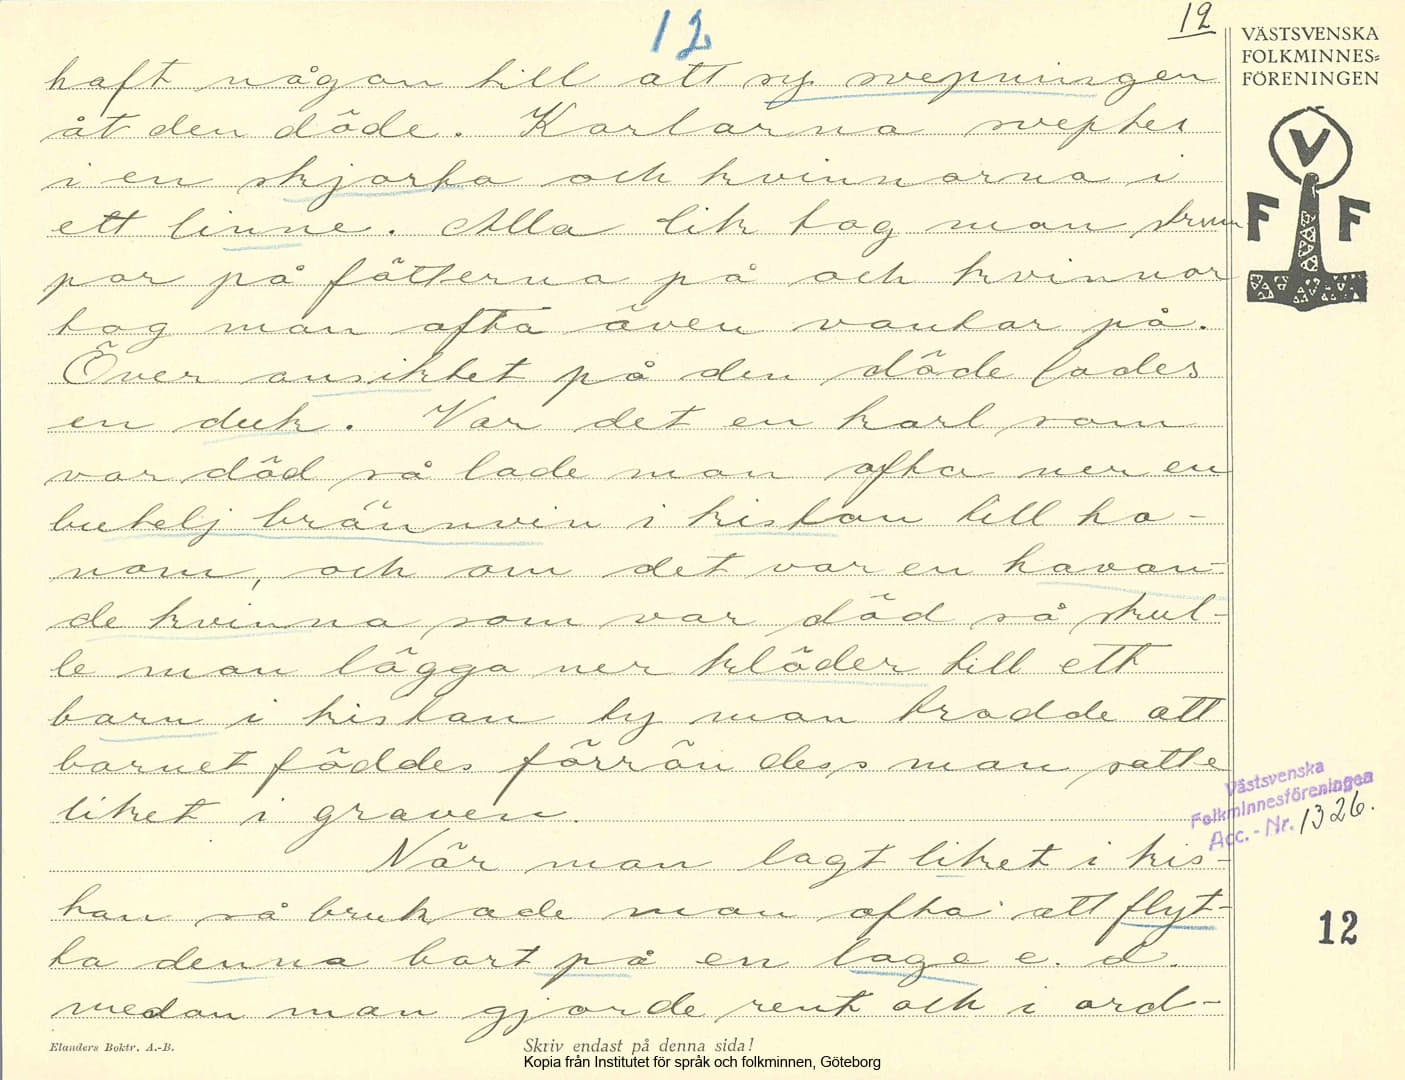 12
12
VÄSTSVENSKA
FOLKMINNES=
FÖRENINGEN
V
F F
haft någon till att sy svepningen
åt den döde. Karlarna sveptes
i en skjorta och kvinnorna i
ett linne. Alla lik tog man strum
por på fötterna på och kvinnor
tog man ofta även vantar på.
Över ansiktet på den döde lades
en duk. Var det en karl som
var död så lade man ofta ner en
butelj brännvin i kistan till ho-
nom, och om det var en havan-
de kvinna som var död så skul-
le man lägga ner kläder till ett
barn i kistan ty man trodde att
barnet föddes förrän dess man satte
liket i graven.
När man lagt liket i kis-
tan så brukade man ofta att flyt-
ta denna bort på en lage e. d.
medan man gjorde rent och i ord-
Västsvenska
Folkminnesföreningen
Acc.-Nr. 1326.
12
Elanders Boktr. A.-B.
Skriv endast på denna sida!
Kopia från Institutet för språk och folkminnen, Göteborg